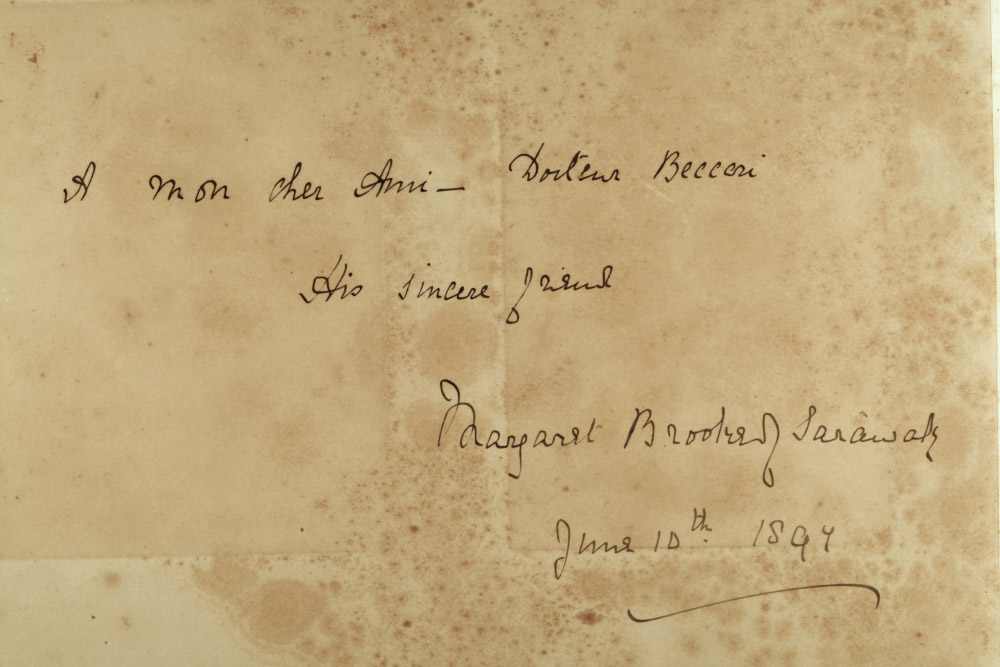 A mon cher Ami— Docteur Beccari
His sincere friend
Margaret Brooke of Sarawak
June 10th. 1897